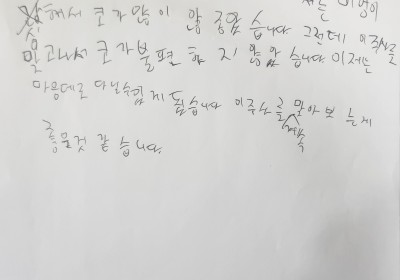 저는 비염이
심해서 코가 많이 않 좋았 습니다 그런데 이 주사를
맞고나서 코가 불편 하 지 않았 습니다 이제는
마음데로 다닐수있 게 됬습니다 이주사를 맞아보 는게
계속
좋을것 같 습니다.